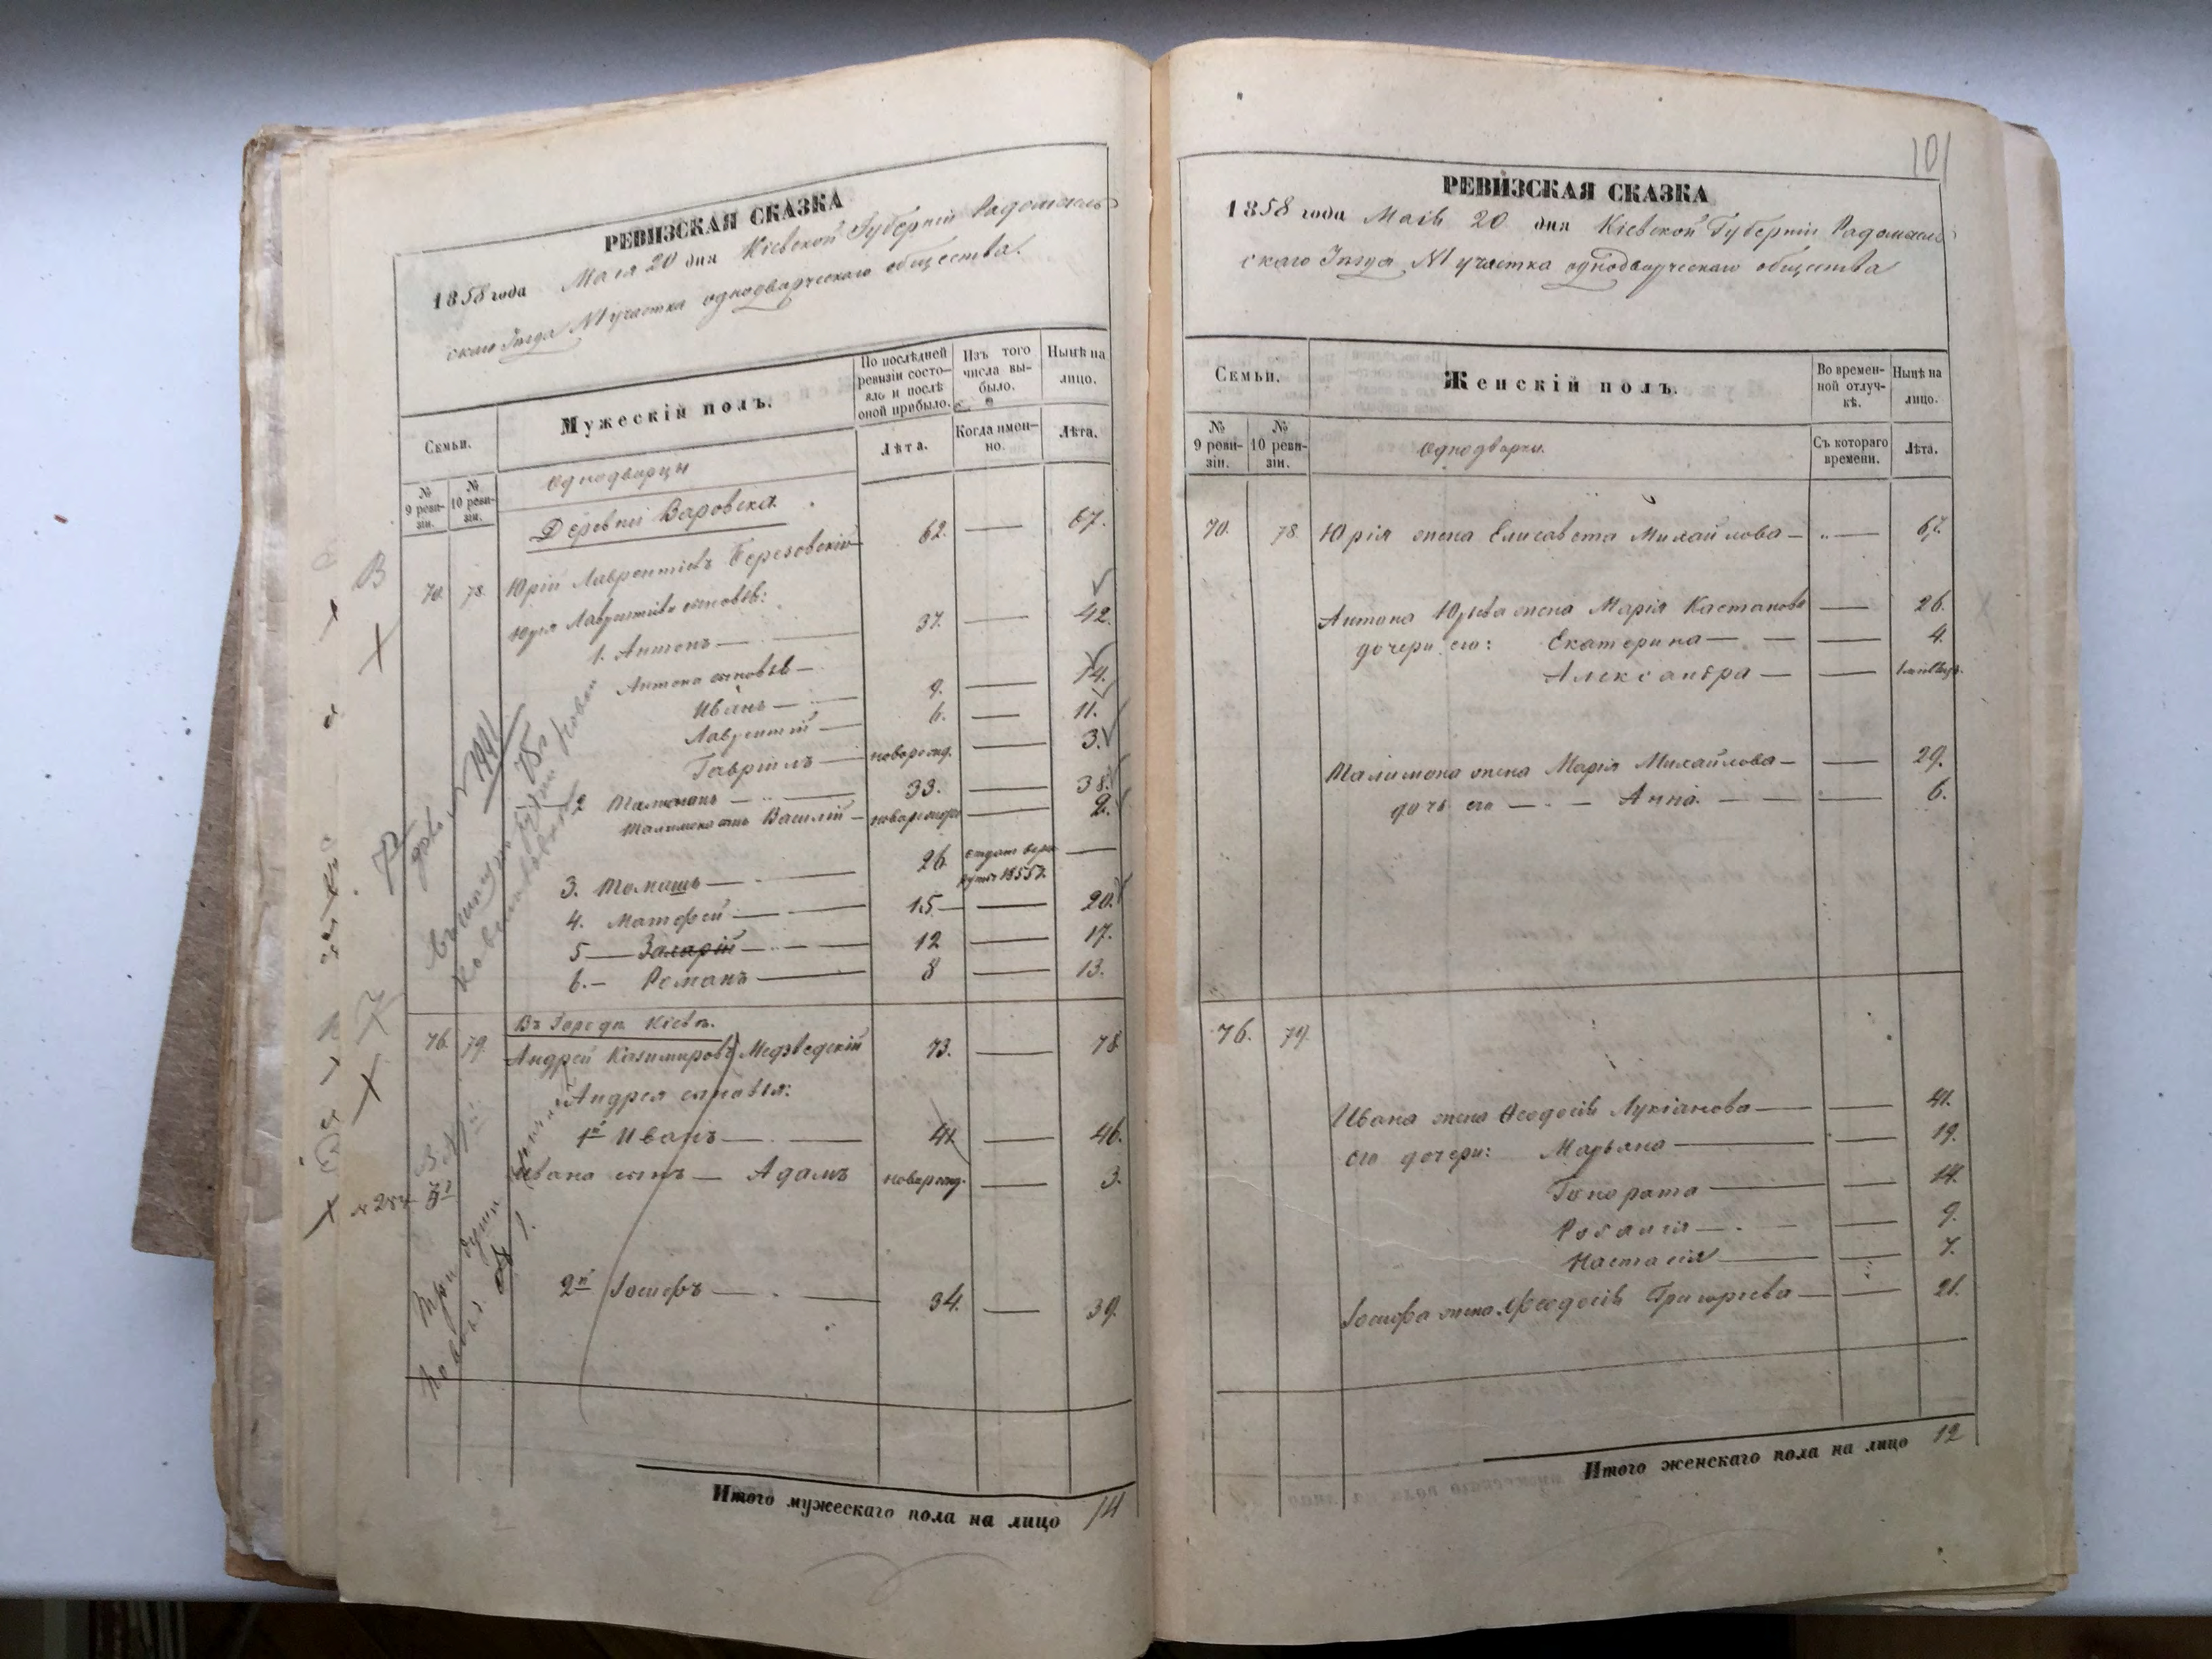 РЕВИЗСКАЯ СКАЗКА
1858 года Мая 20 дня Кіевской Губерніи Радомысль
скаго Уезда №1 участка однодворческаго общества.
Семьи.
Мужескій полъ.
По послѣдней ревизіи состо-
яло и послѣ оной прибыло.
Изъ того числа вы-
было.
Нынѣ на лицо.
№ 9 реви-
зіи.
№ 10 реви-
зіи.
Однодворцы
Лѣта.
Когда имен-
но.
Лѣта.
Деревни Варовска
70. 78. Юрій Лаврентіевъ Березовскій 62. — 67.
Юрія Лаврентіева сыновья:
1. Антонъ — 37. — 42.
Антона сыновья —
Иванъ — 9. — 14.
Лаврентій — 6. — 11.
Гавріилъ — новорожд. — 3.
2 — 33. — 38.
сынъ Василій — новорожд — 2.
3. Томашъ — 26. 1855 —
4. Матфей — 15 — 20.
5 — — 12 — 17.
6. — Романъ — 8 — 13.
Въ Городѣ Кіевѣ.
76. 79. Андрей Казимировъ Медведскій 73. — 78
Андрея сыновья:
1й Иванъ — 41 — 46.
Ивана сынъ — Адамъ новорожд. — 3.
2й Іосифъ — 34. — 39.
Итого мужескаго пола на лицо 14
101
РЕВИЗСКАЯ СКАЗКА
1858 года Маія 20 дня Кіевской Губерніи Радомысль
скаго Уезда №1 участка однодворческаго общества
Семьи.
Женскій полъ.
Во времен-
ной отлуч-
кѣ.
Нынѣ на лицо.
№ 9 реви-
зіи.
№ 10 реви-
зіи.
Однодворки.
Съ котораго времени.
Лѣта.
70. 78. Юрія жена Елисавета Михайлова — — 67.
Антона Юрьева жена Марія Кастанова — 26.
дочери его: Екатерина — — 4.
Александра — —
жена Марія Михайлова — — 29.
дочь его — Анна — — 6.
76. 79.
Ивана жена Феодосія Лукіанова — — 41.
его дочери: Марьяна — — 19.
Гонората — — 14.
Розалія — — 9.
Настасія — — 7.
Іосифа жена Феодосія Григорьева — — 21.
Итого женскаго пола на лицо 12